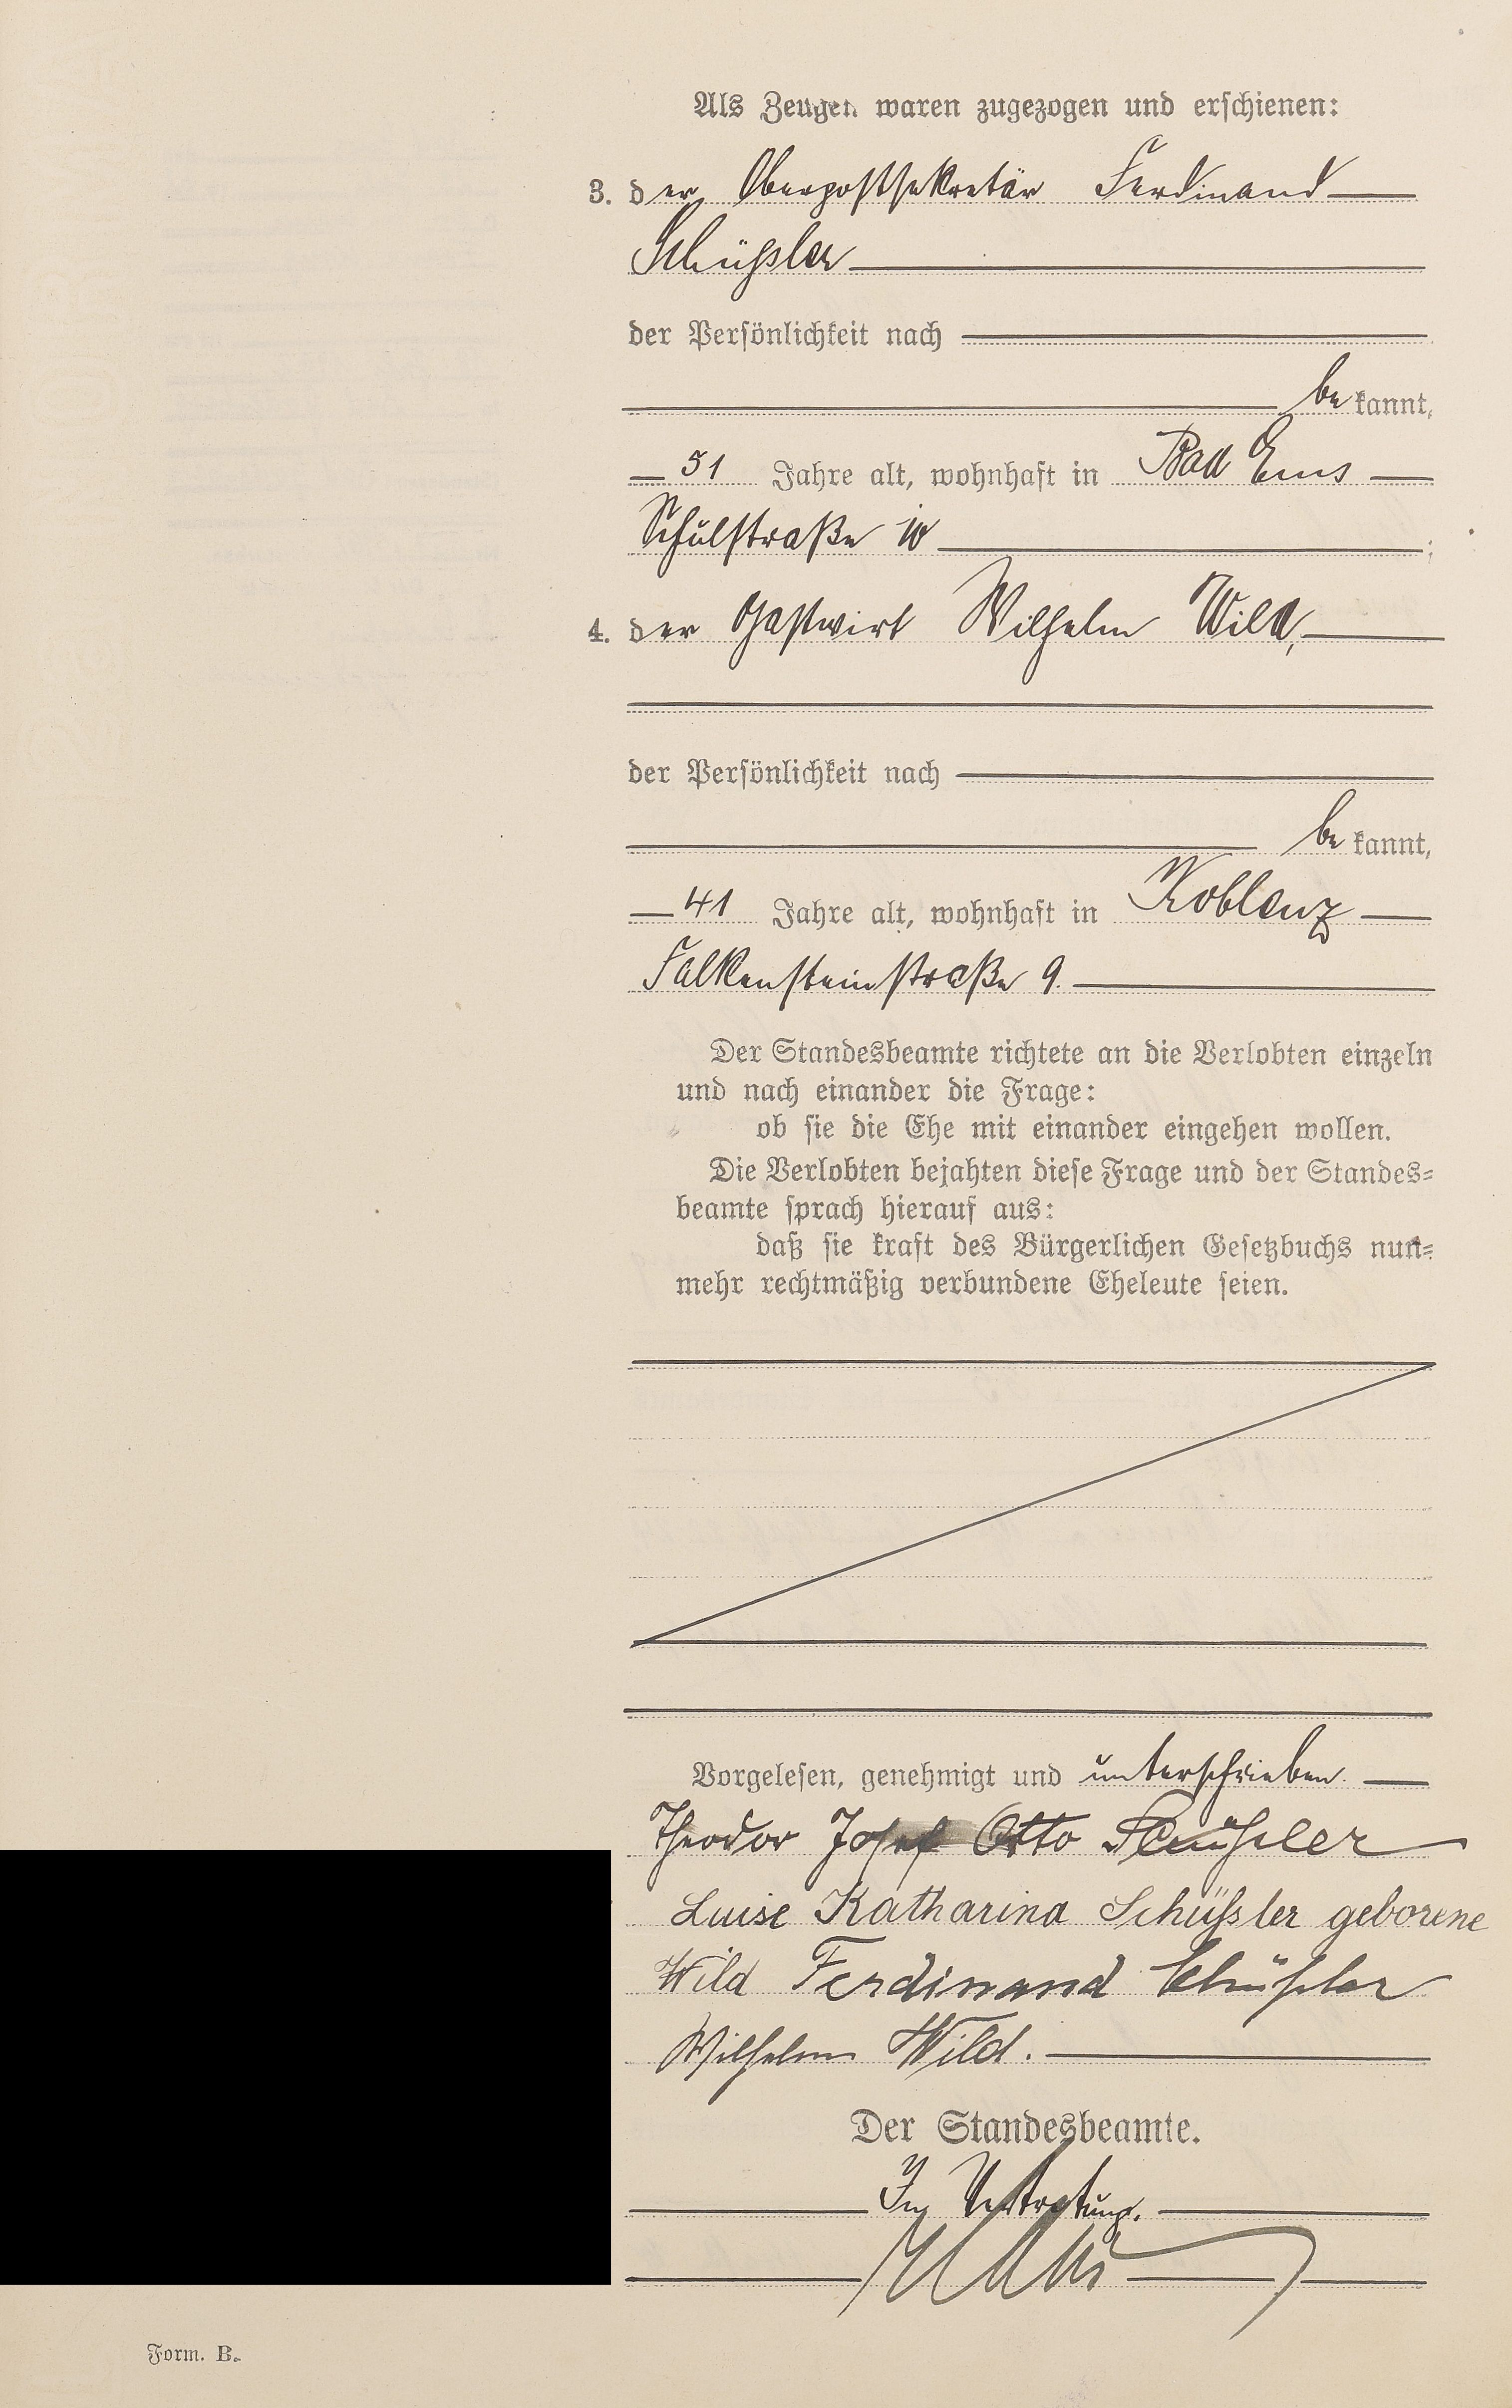 Als Zeugen waren zugezogen und erschienen:
3. der Oberpostsekretär Ferdinand
Schüßler
der Persönlichkeit nach
be kannt,
51 Jahre alt, wohnhaft in Bad Ems
Schulstraße 10
4. der Gastwirt Wilhelm Wild,
der Persönlichkeit nach
be kannt,
41 Jahre alt, wohnhaft in Koblenz
Falkensteinstraße 9.
Der Standesbeamte richtete an die Verlobten einzeln
und nach einander die Frage:
ob sie die Ehe mit einander eingehen wollen.
Die Verlobten bejahten diese Frage und der Standes=
beamte sprach hierauf aus:
daß sie kraft des Bürgerlichen Gesetzbuchs nun=
mehr rechtmäßig verbundene Eheleute seien.
Vorgelesen, genehmigt und unterschrieben.
Theodor Josef Otto Schüßler
Luise Katharina Schüßler geborene
Wild Ferdinand Schüßler
Wilhelm Wild.
Der Standesbeamte.
In Vertretung.
Form. B.